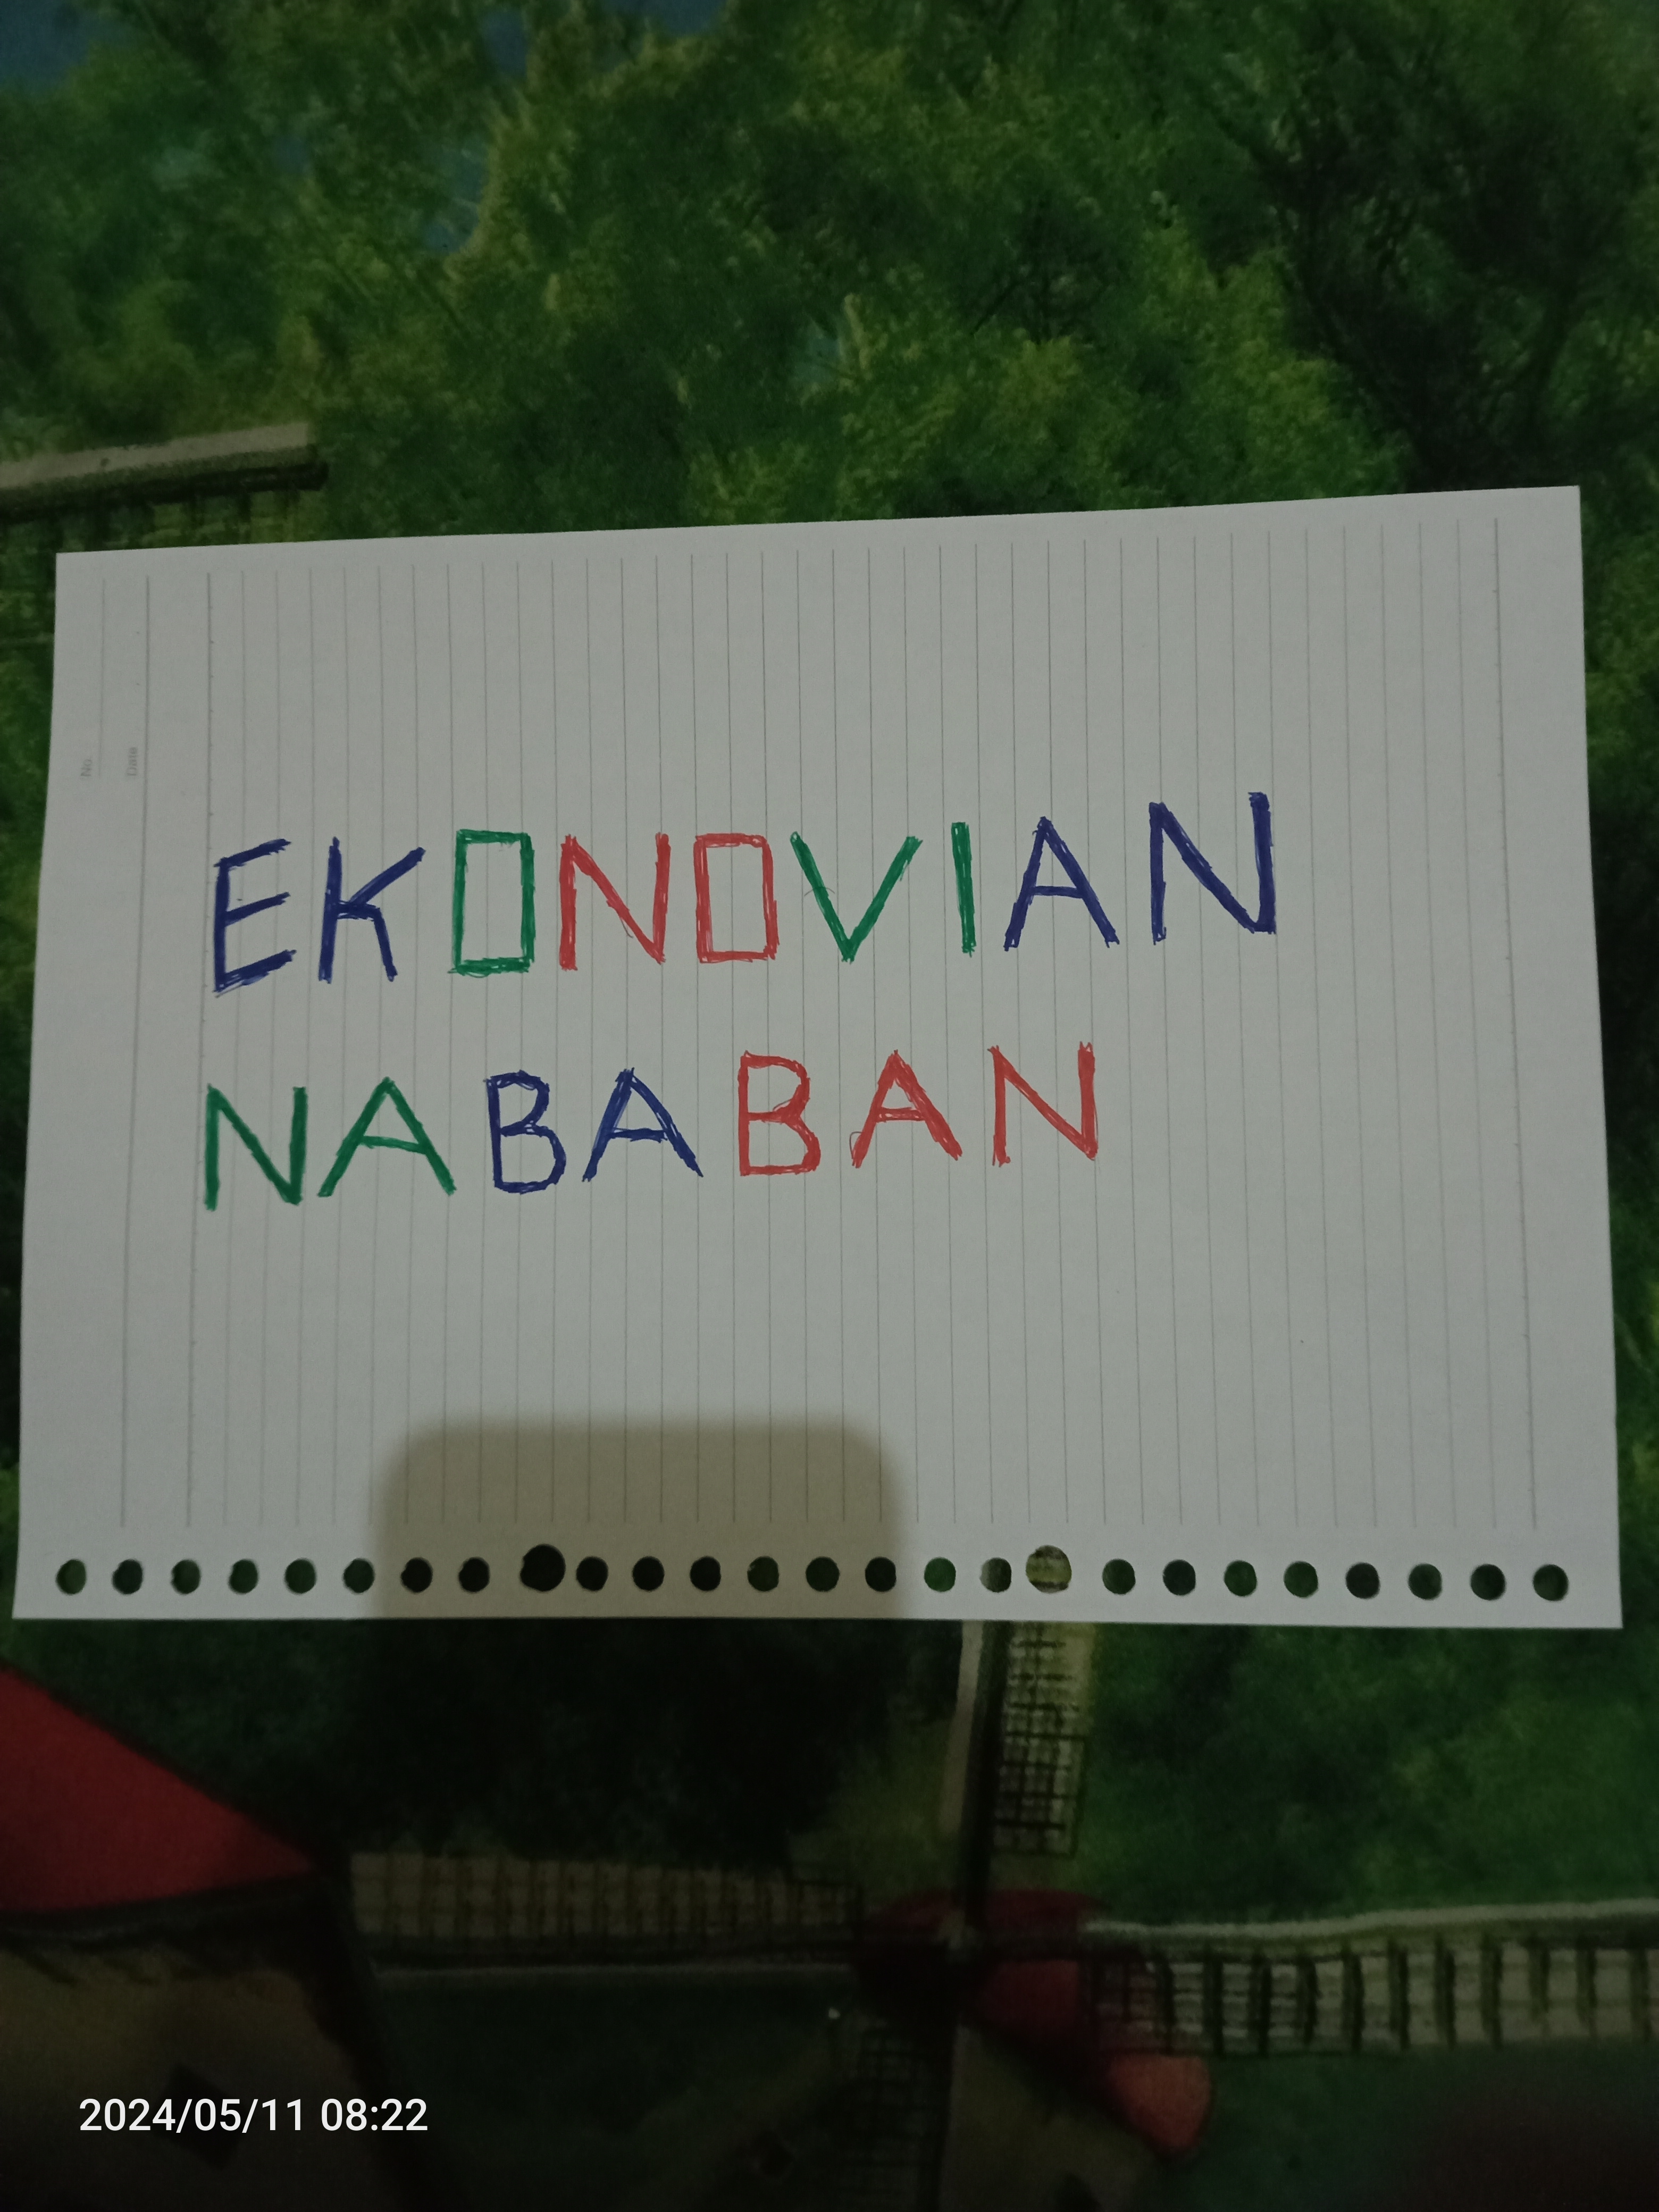 No.
Date
EKONOVIAN
NABABAN
2024/05/11 08:22